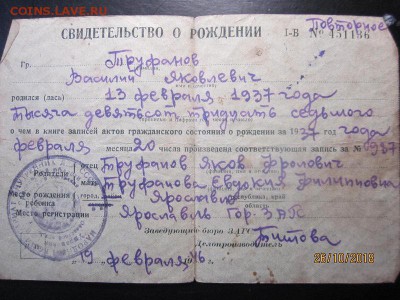 COINS.LAVE.RU
СВИДЕТЕЛЬСТВО О РОЖДЕНИИ
Повторное
I-В № 451186
Гр. Труфанов
Василий Яковлевич
родился (лась) 13 февраля 1937 года
тысяча девятьсот тридцать седьмого
о чем в книге записей актов гражданского состояния о рождении за 1937 год года
февраля месяца 20 числа произведена соответствующая запись за № 937
Родители
отец Труфанов Яков Фролович
мать Труфанова Евдокия Филипповна
Место рождения ребенка
город, Ярославль
край
Место регистрации Ярославль Гор. ЗАГС
Заведующий бюро ЗАГС
Делопроизводитель
Битова
19 февраля
26/10/2018